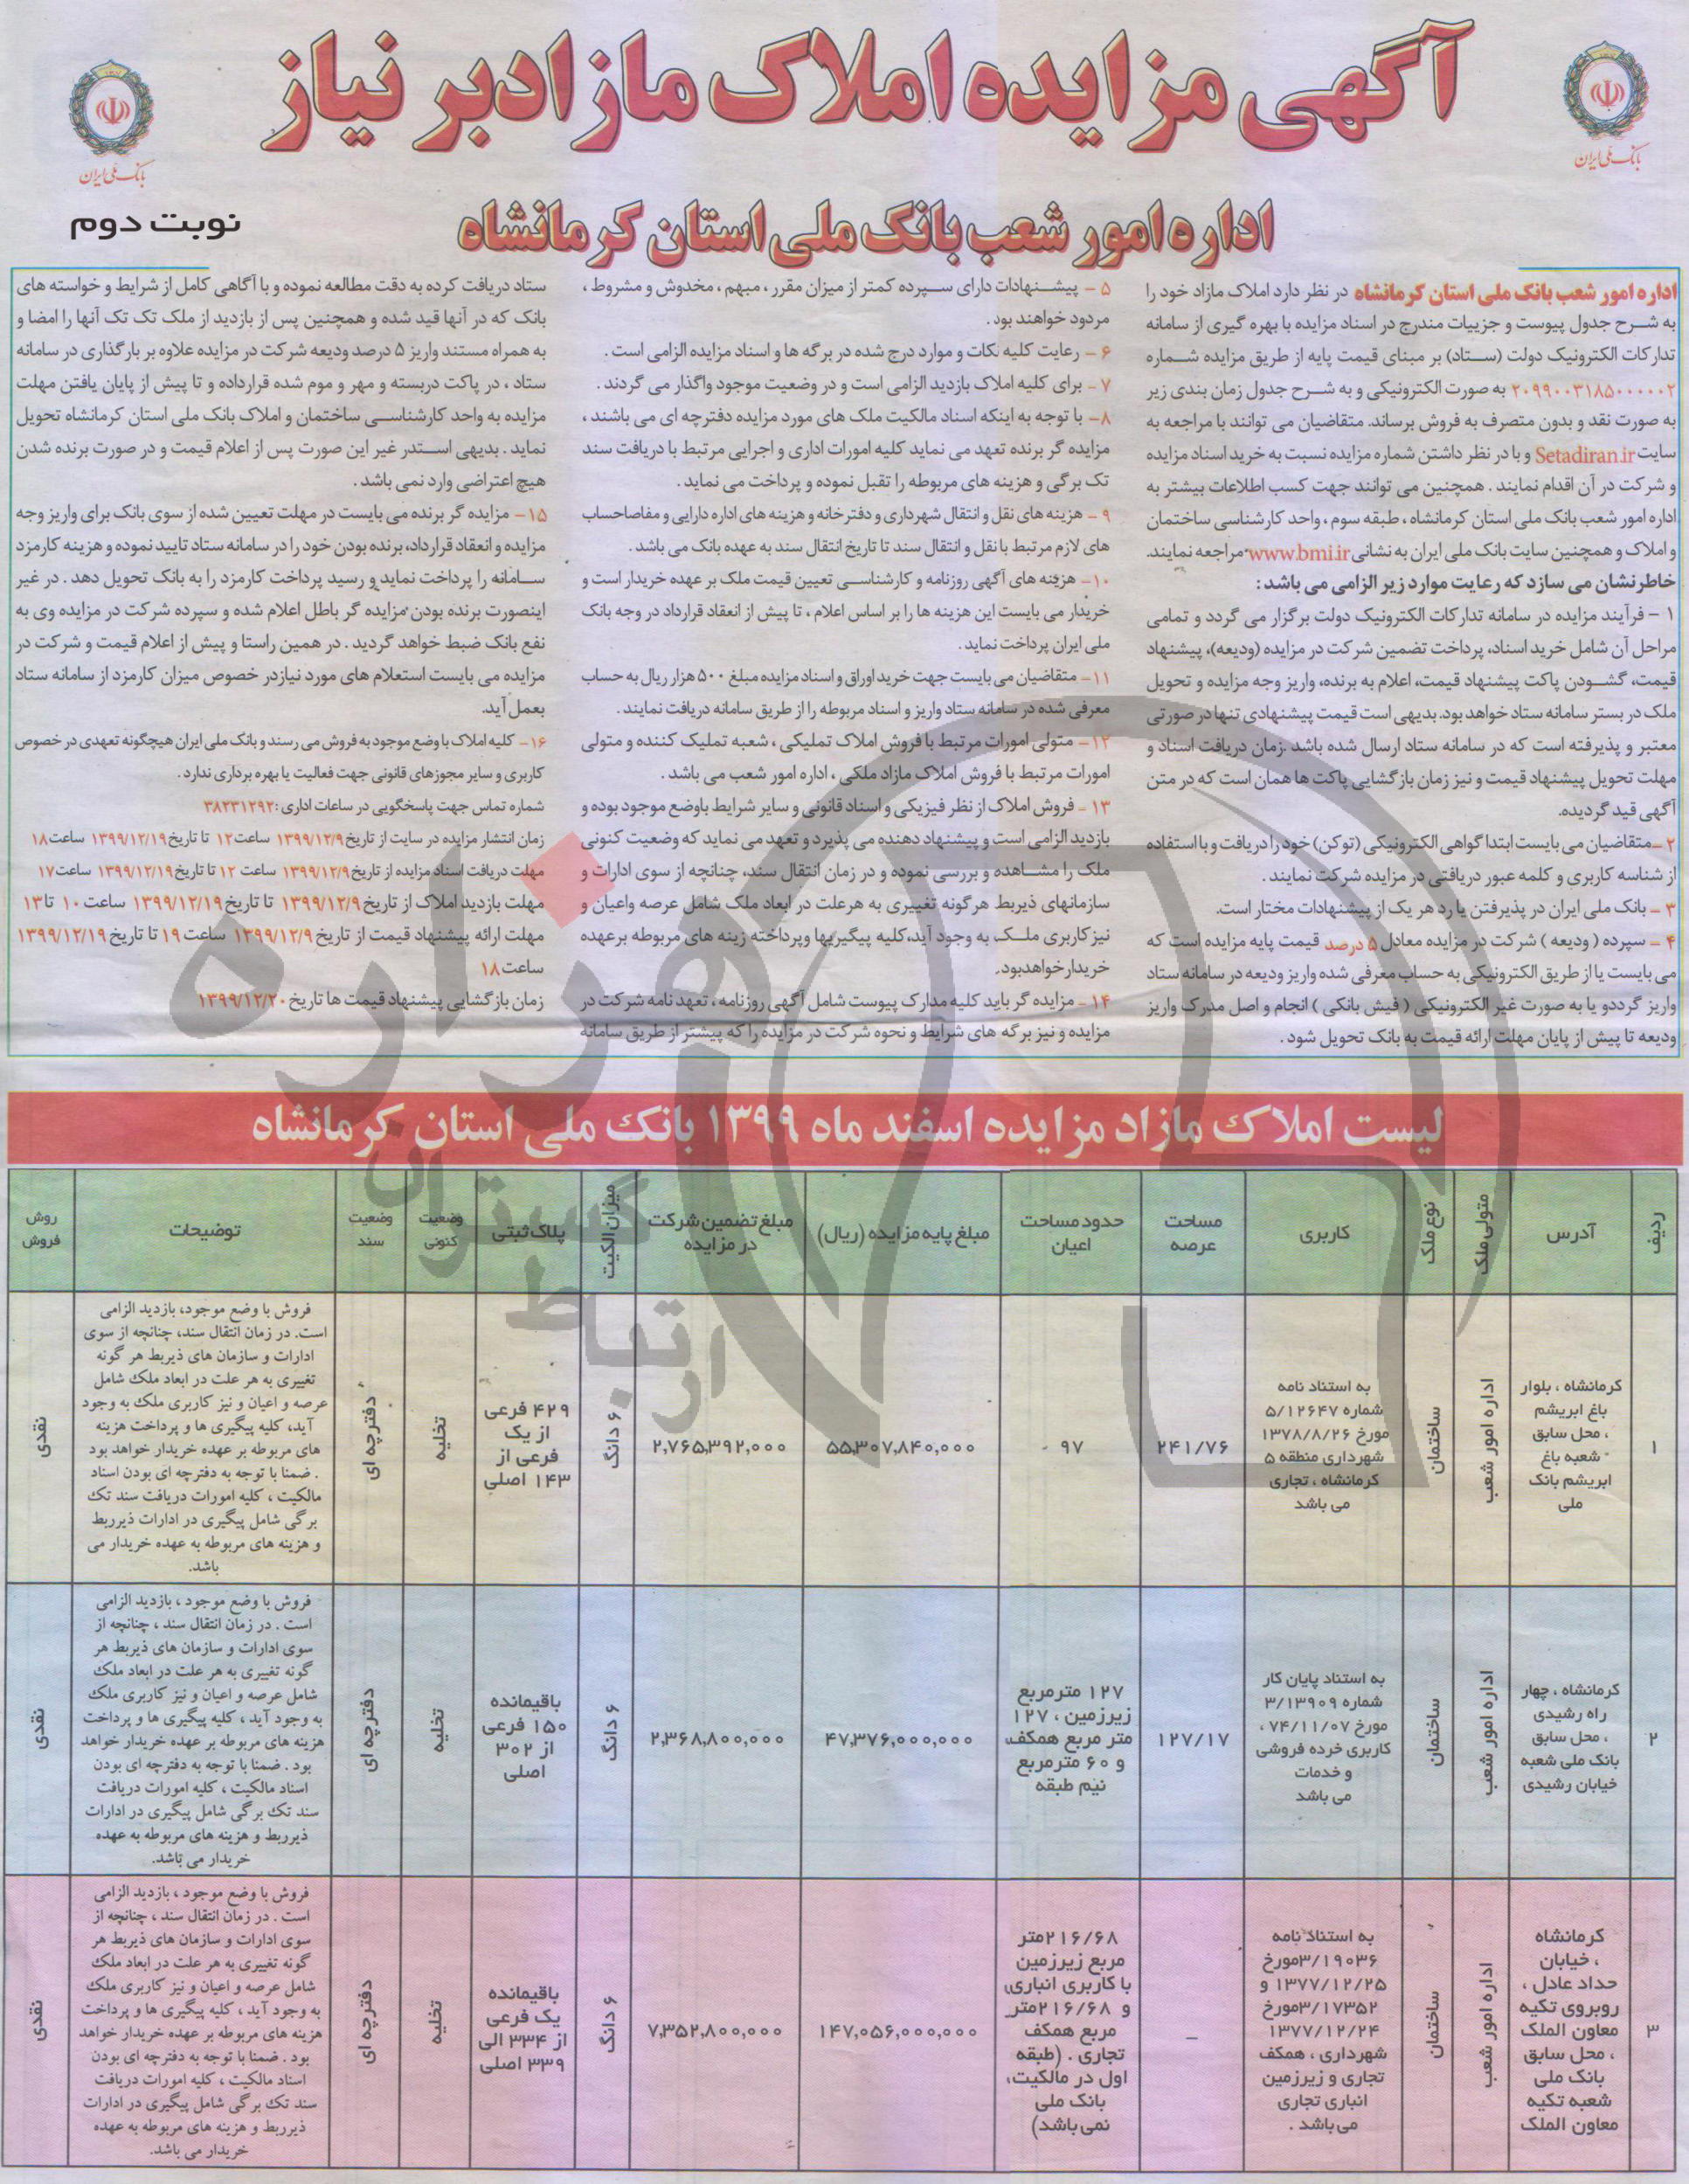 آگهی مزایده املاک مازاد بر نیاز
بانک ملی ایران
بانک ملی ایران
اداره امور شعب بانک ملی استان کرمانشاه
نوبت دوم
اداره امور شعب بانک ملی استان کرمانشاه در نظر دارد املاک مازاد خود را
به شرح جدول پیوست و جزییات مندرج در اسناد مزایده با بهره گیری از سامانه
تدارکات الکترونیک دولت (ستاد) بر مبنای قیمت پایه از طریق مزایده شماره
۲۰۹۹۰۰۳۱۸۵۰۰۰۰۰۲ به صورت الکترونیکی و به شرح جدول زمان بندی زیر
به صورت نقد و بدون متصرف به فروش برساند. متقاضیان می توانند با مراجعه به
سایت Setadiran.ir و با در نظر داشتن شماره مزایده نسبت به خرید اسناد مزایده
و شرکت در آن اقدام نمایند . همچنین می توانند جهت کسب اطلاعات بیشتر به
اداره امور شعب بانک ملی استان کرمانشاه ، طبقه سوم ، واحد کارشناسی ساختمان
و املاک و همچنین سایت بانک ملی ایران به نشانی www.bmi.ir مراجعه نمایند.
خاطرنشان می سازد که رعایت موارد زیر الزامی می باشد :
۱ – فرآیند مزایده در سامانه تدارکات الکترونیک دولت برگزار می گردد و تمامی
مراحل آن شامل خرید اسناد، پرداخت تضمین شرکت در مزایده (ودیعه)، پیشنهاد
قیمت، گشودن پاکت پیشنهاد قیمت، اعلام به برنده، واریز وجه مزایده و تحویل
ملک در بستر سامانه ستاد خواهد بود. بدیهی است قیمت پیشنهادی تنها در صورتی
معتبر و پذیرفته است که در سامانه ستاد ارسال شده باشد .زمان دریافت اسناد و
مهلت تحویل پیشنهاد قیمت و نیز زمان بازگشایی پاکت ها همان است که در متن
آگهی قید گردیده.
۲ – متقاضیان می بایست ابتدا گواهی الکترونیکی (توکن) خود را دریافت و با استفاده
از شناسه کاربری و کلمه عبور دریافتی در مزایده شرکت نمایند .
۳ – بانک ملی ایران در پذیرفتن یا رد هر یک از پیشنهادات مختار است.
۴ – سپرده ( ودیعه ) شرکت در مزایده معادل ۵ درصد قیمت پایه مزایده است که
می بایست یا از طریق الکترونیکی به حساب معرفی شده واریز ودیعه در سامانه ستاد
واریز گردد و یا به صورت غیر الکترونیکی ( فیش بانکی ) انجام و اصل مدرک واریز
ودیعه تا پیش از پایان مهلت ارائه قیمت به بانک تحویل شود .
۵ – پیشنهادات دارای سپرده کمتر از میزان مقرر ، مبهم ، مخدوش و مشروط ،
مردود خواهند بود .
۶ – رعایت کلیه نکات و موارد درج شده در برگه ها و اسناد مزایده الزامی است .
۷ – برای کلیه املاک بازدید الزامی است و در وضعیت موجود واگذار می گردند .
۸ – با توجه به اینکه اسناد مالکیت ملک های مورد مزایده دفترچه ای می باشند ،
مزایده گر برنده تعهد می نماید کلیه امورات اداری و اجرایی مرتبط با دریافت سند
تک برگی و هزینه های مربوطه را تقبل نموده و پرداخت می نماید .
۹ – هزینه های نقل و انتقال شهرداری و دفترخانه و هزینه های اداره دارایی و مفاصاحساب
های لازم مرتبط با نقل و انتقال سند تا تاریخ انتقال سند به عهده بانک می باشد .
۱۰ – هزینه های آگهی روزنامه و کارشناسی تعیین قیمت ملک بر عهده خریدار است و
خریدار می بایست این هزینه ها را بر اساس اعلام ، تا پیش از انعقاد قرارداد در وجه بانک
ملی ایران پرداخت نماید .
۱۱ – متقاضیان می بایست جهت خرید اوراق و اسناد مزایده مبلغ ۵۰۰ هزار ریال به حساب
معرفی شده در سامانه ستاد واریز و اسناد مربوطه را از طریق سامانه دریافت نمایند .
۱۲ – متولی امورات مرتبط با فروش املاک تملیکی ، شعبه تملیک کننده و متولی
امورات مرتبط با فروش املاک مازاد ملکی ، اداره امور شعب می باشد .
۱۳ – فروش املاک از نظر فیزیکی و اسناد قانونی و سایر شرایط باوضع موجود بوده و
بازدید الزامی است و پیشنهاد دهنده می پذیرد و تعهد می نماید که وضعیت کنونی
ملک را مشاهده و بررسی نموده و در زمان انتقال سند، چنانچه از سوی ادارات و
سازمانهای ذیربط هرگونه تغییری به هرعلت در ابعاد ملک شامل عرصه واعیان و
نیز کاربری ملک، به وجود آید،کلیه پیگیریها وپرداخته زینه های مربوطه برعهده
خریدارخواهدبود.
۱۴ – مزایده گر باید کلیه مدارک پیوست شامل آگهی روزنامه ، تعهد نامه شرکت در
مزایده و نیز برگه های شرایط و نحوه شرکت در مزایده را که پیشتر از طریق سامانه
ستاد دریافت کرده به دقت مطالعه نموده و با آگاهی کامل از شرایط و خواسته های
بانک که در آنها قید شده و همچنین پس از بازدید از ملک تک تک آنها را امضا و
به همراه مستند واریز ۵ درصد ودیعه شرکت در مزایده علاوه بر بارگذاری در سامانه
ستاد ، در پاکت دربسته و مهر و موم شده قرارداده و تا پیش از پایان یافتن مهلت
مزایده به واحد کارشناسی ساختمان و املاک بانک ملی استان کرمانشاه تحویل
نماید . بدیهی استدر غیر این صورت پس از اعلام قیمت و در صورت برنده شدن
هیچ اعتراضی وارد نمی باشد .
۱۵ – مزایده گر برنده می بایست در مهلت تعیین شده از سوی بانک برای واریز وجه
مزایده و انعقاد قرارداد، برنده بودن خود را در سامانه ستاد تایید نموده و هزینه کارمزد
سامانه را پرداخت نماید و رسید پرداخت کارمزد را به بانک تحویل دهد . در غیر
اینصورت برنده بودن مزایده گر باطل اعلام شده و سپرده شرکت در مزایده وی به
نفع بانک ضبط خواهد گردید . در همین راستا و پیش از اعلام قیمت و شرکت در
مزایده می بایست استعلام های مورد نیازدر خصوص میزان کارمزد از سامانه ستاد
بعمل آید.
۱۶ – کلیه املاک با وضع موجود به فروش می رسند و بانک ملی ایران هیچگونه تعهدی در خصوص
کاربری و سایر مجوزهای قانونی جهت فعالیت یا بهره برداری ندارد .
شماره تماس جهت پاسخگویی در ساعات اداری : ۳۸۲۳۱۲۹۲
زمان انتشار مزایده در سایت از تاریخ ۱۳۹۹/۱۲/۹ ساعت ۱۲ تا تاریخ ۱۳۹۹/۱۲/۱۹ ساعت ۱۸
مهلت دریافت اسناد مزایده از تاریخ ۱۳۹۹/۱۲/۹ ساعت ۱۲ تا تاریخ ۱۳۹۹/۱۲/۱۹ ساعت ۱۷
مهلت بازدید املاک از تاریخ ۱۳۹۹/۱۲/۹ تا تاریخ ۱۳۹۹/۱۲/۱۹ ساعت ۱۰ تا ۱۳
مهلت ارائه پیشنهاد قیمت از تاریخ ۱۳۹۹/۱۲/۹ ساعت ۱۹ تا تاریخ ۱۳۹۹/۱۲/۱۹
ساعت ۱۸
زمان بازگشایی پیشنهاد قیمت ها تاریخ ۱۳۹۹/۱۲/۲۰
هزاره
گستران
ارتباط
لیست املاک مازاد مزایده اسفند ماه ۱۳۹۹ بانک ملی استان کرمانشاه
ردیف
آدرس
متولی ملک
نوع ملک
کاربری
مساحت
عرصه
حدود مساحت
اعیان
مبلغ پایه مزایده (ریال)
مبلغ تضمین شرکت
در مزایده
میزان الکیت
پلاک ثبتی
وضعیت
کنونی
وضعیت
سند
توضیحات
روش
فروش
۱
کرمانشاه ، بلوار
باغ ابریشم
، محل سابق
شعبه باغ
ابریشم بانک
ملی
اداره امور شعب
ساختمان
به استناد نامه
شماره ۵/۱۲۶۴۷
مورخ ۱۳۷۸/۸/۲۶
شهرداری منطقه ۵
کرمانشاه ، تجاری
می باشد
۲۴۱/۷۶
۹۷
۵۵,۳۰۷,۸۴۰,۰۰۰
۲,۷۶۵,۳۹۲,۰۰۰
۶ دانگ
۴۲۹ فرعی
از یک
فرعی از
۱۴۳ اصلی
تخلیه
دفترچه ای
فروش با وضع موجود، بازدید الزامی
است. در زمان انتقال سند، چنانچه از سوی
ادارات و سازمان های ذیربط هر گونه
تغییری به هر علت در ابعاد ملک شامل
عرصه و اعیان و نیز کاربری ملک به وجود
آید، کلیه پیگیری ها و پرداخت هزینه
های مربوطه بر عهده خریدار خواهد بود
. ضمنا با توجه به دفترچه ای بودن اسناد
مالکیت ، کلیه امورات دریافت سند تک
برگی شامل پیگیری در ادارات ذیرربط
و هزینه های مربوطه به عهده خریدار می
باشد.
نقدی
۲
کرمانشاه ، چهار
راه رشیدی
، محل سابق
بانک ملی شعبه
خیابان رشیدی
اداره امور شعب
ساختمان
به استناد پایان کار
شماره ۳/۱۳۹۰۹
مورخ ۷۴/۱۱/۰۷ ،
کاربری خرده فروشی
و خدمات
می باشد
۱۲۷/۱۷
۱۲۷ مترمربع
زیرزمین ، ۱۲۷
متر مربع همکف
و ۶۰ مترمربع
نیم طبقه
۴۷,۳۷۶,۰۰۰,۰۰۰
۲,۳۶۸,۸۰۰,۰۰۰
۶ دانگ
باقیمانده
۱۵۰ فرعی
از ۳۰۲
اصلی
تخلیه
دفترچه ای
فروش با وضع موجود ، بازدید الزامی
است . در زمان انتقال سند ، چنانچه از
سوی ادارات و سازمان های ذیربط هر
گونه تغییری به هر علت در ابعاد ملک
شامل عرصه و اعیان و نیز کاربری ملک
به وجود آید ، کلیه پیگیری ها و پرداخت
هزینه های مربوطه بر عهده خریدار خواهد
بود . ضمنا با توجه به دفترچه ای بودن
اسناد مالکیت ، کلیه امورات دریافت
سند تک برگی شامل پیگیری در ادارات
ذیرربط و هزینه های مربوطه به عهده
خریدار می باشد.
نقدی
۳
کرمانشاه
، خیابان
حداد عادل ،
روبروی تکیه
معاون الملک
، محل سابق
بانک ملی
شعبه تکیه
معاون الملک
اداره امور شعب
ساختمان
به استناد نامه
۳/۱۹۰۳۶مورخ
۱۳۷۷/۱۲/۲۵ و
۳/۱۷۳۵۲مورخ
۱۳۷۷/۱۲/۲۴
شهرداری ، همکف
تجاری و زیرزمین
انباری تجاری
می باشد .
–
۲۱۶/۶۸متر
مربع زیرزمین
با کاربری انباری
و ۲۱۶/۶۸متر
مربع همکف
تجاری . (طبقه
اول در مالکیت
بانک ملی
نمی باشد)
۱۴۷,۰۵۶,۰۰۰,۰۰۰
۷,۳۵۲,۸۰۰,۰۰۰
۶ دانگ
باقیمانده
یک فرعی
از ۳۳۴ الی
۳۳۹ اصلی
تخلیه
دفترچه ای
فروش با وضع موجود ، بازدید الزامی
است . در زمان انتقال سند ، چنانچه از
سوی ادارات و سازمان های ذیربط هر
گونه تغییری به هر علت در ابعاد ملک
شامل عرصه و اعیان و نیز کاربری ملک
به وجود آید ، کلیه پیگیری ها و پرداخت
هزینه های مربوطه بر عهده خریدار خواهد
بود . ضمنا با توجه به دفترچه ای بودن
اسناد مالکیت ، کلیه امورات دریافت
سند تک برگی شامل پیگیری در ادارات
ذیرربط و هزینه های مربوطه به عهده
خریدار می باشد.
نقدی